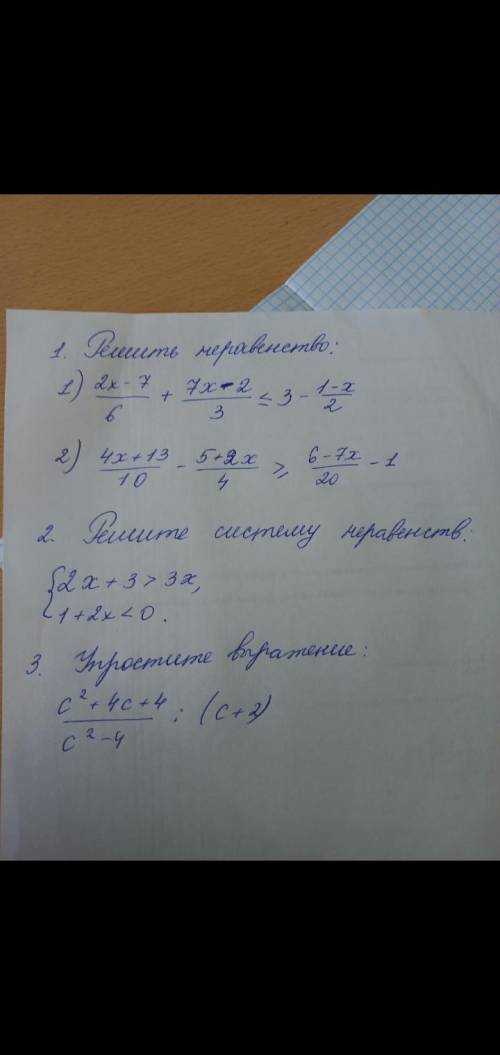 1. Решить неравенство:
1) (2x-7)/6 + (7x-2)/3 ≤ 3 - (1-x)/2
2) (4x+13)/10 - (5+2x)/4 ≥ (6-7x)/20 - 1
2. Решите систему неравенств:
{2x+3>3x,
1+2x<0.
3. Упростите выражение:
(c²+4c+4)/(c²-4) : (c+2)